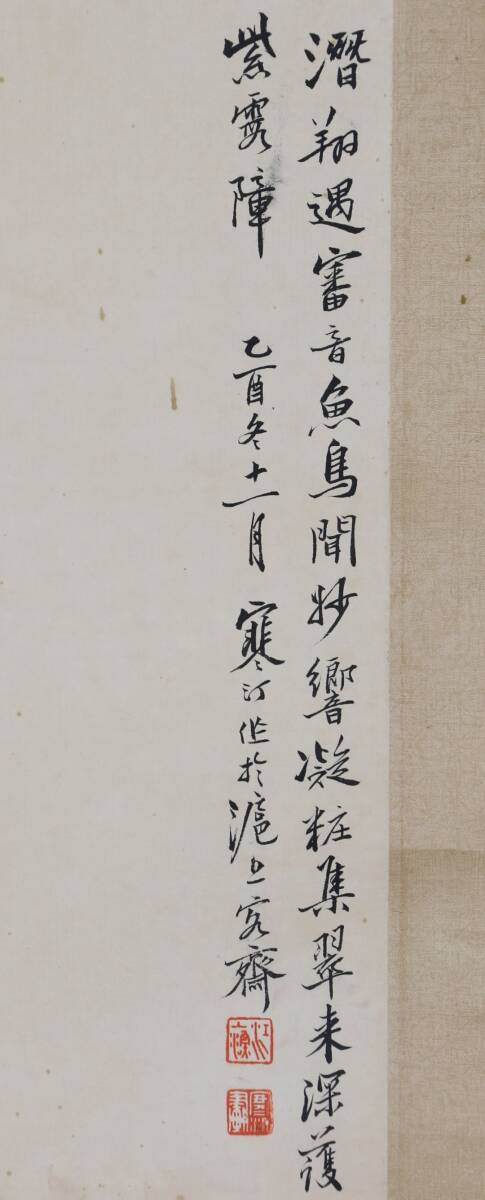 潛翔遇審音魚鳥聞妙響凝粧集翠来深護
紫霞障　乙酉冬十一月　寒汀作於滬上客齋